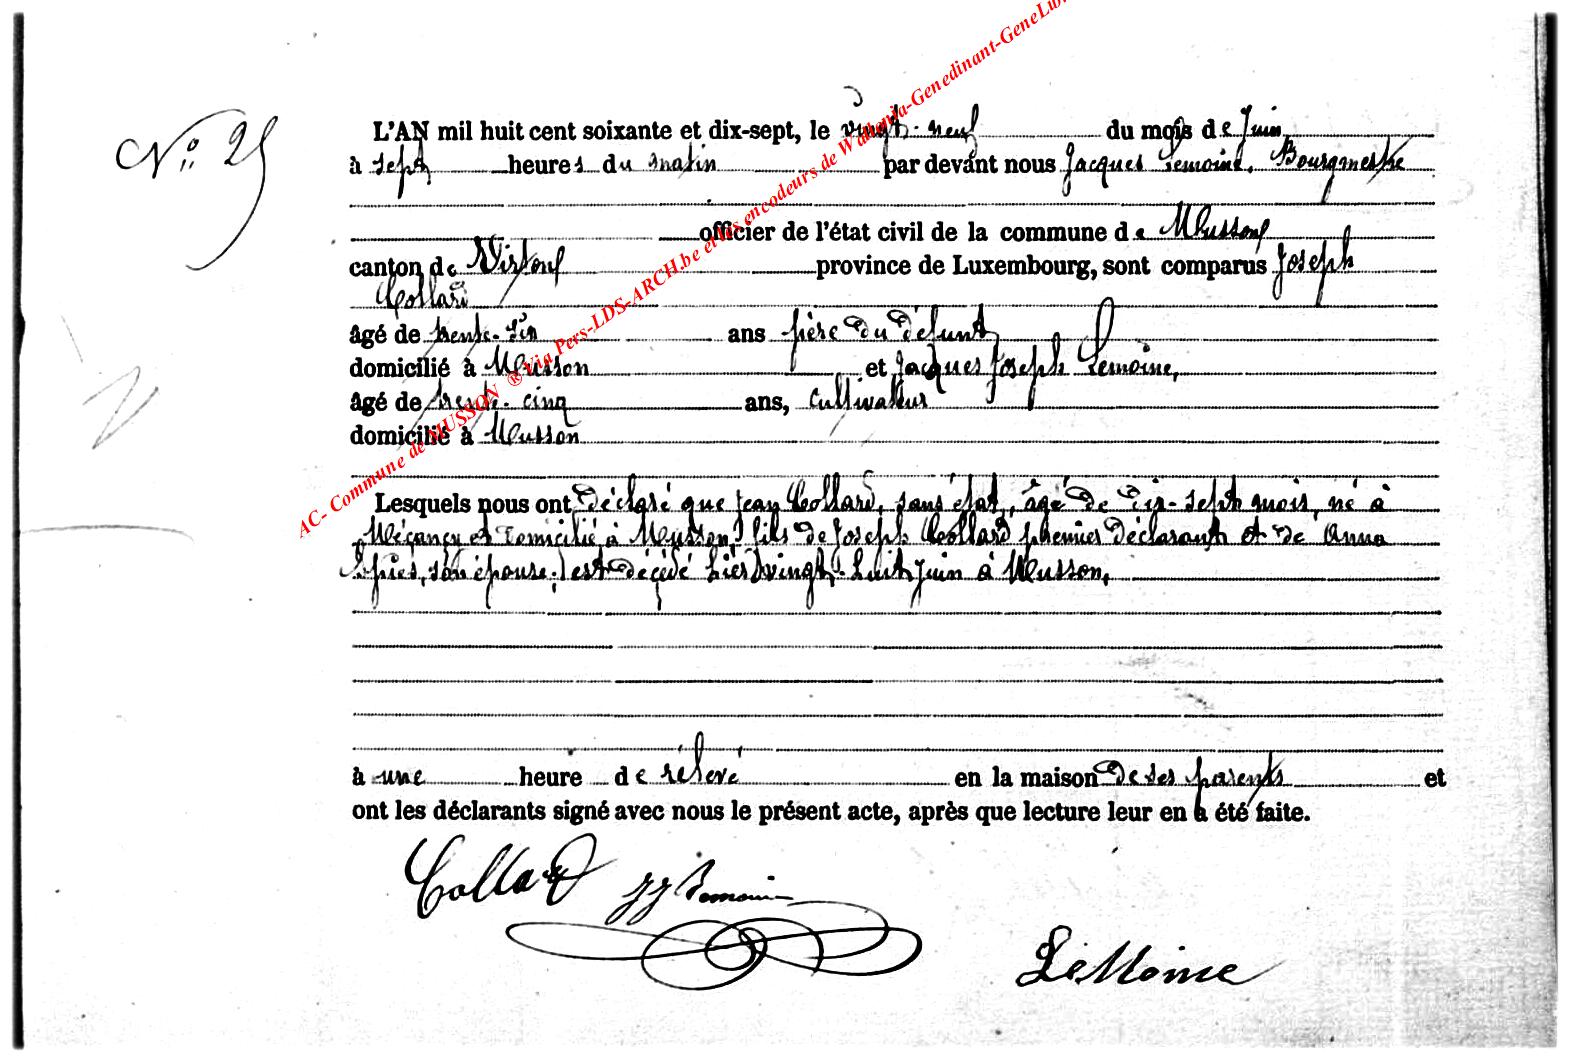 N° 25
L'AN mil huit cent soixante et dix-sept, le vingt-neuf du mois de Juin
à sept heures du matin par devant nous Jacques Lemoine, Bourgmestre
officier de l'état civil de la commune de Musson
canton de Virton province de Luxembourg, sont comparus Joseph
Collard
âgé de trente-six ans père du défunt
domicilié à Musson et Jacques Joseph Lemoine,
âgé de trente-cinq ans, cultivateur
domicilié à Musson
Lesquels nous ont déclaré que Jean Collard, sans état, âgé de dix-sept mois, né à
Méçancy et domicilié à Musson, fils de Joseph Collard premier déclarant et de Anna
Spies, son épouse, est décédé hier vingt-huit Juin à Musson,
à une heure de rélevé en la maison de ses parents et
ont les déclarants signé avec nous le présent acte, après que lecture leur en a été faite.
Collard JJ Lemoine
LeMoine
AC- Commune de MUSSON ® Via Pers-LDS-ARCH.be et les encodeurs de Wallonia-Genedinant-GeneLux